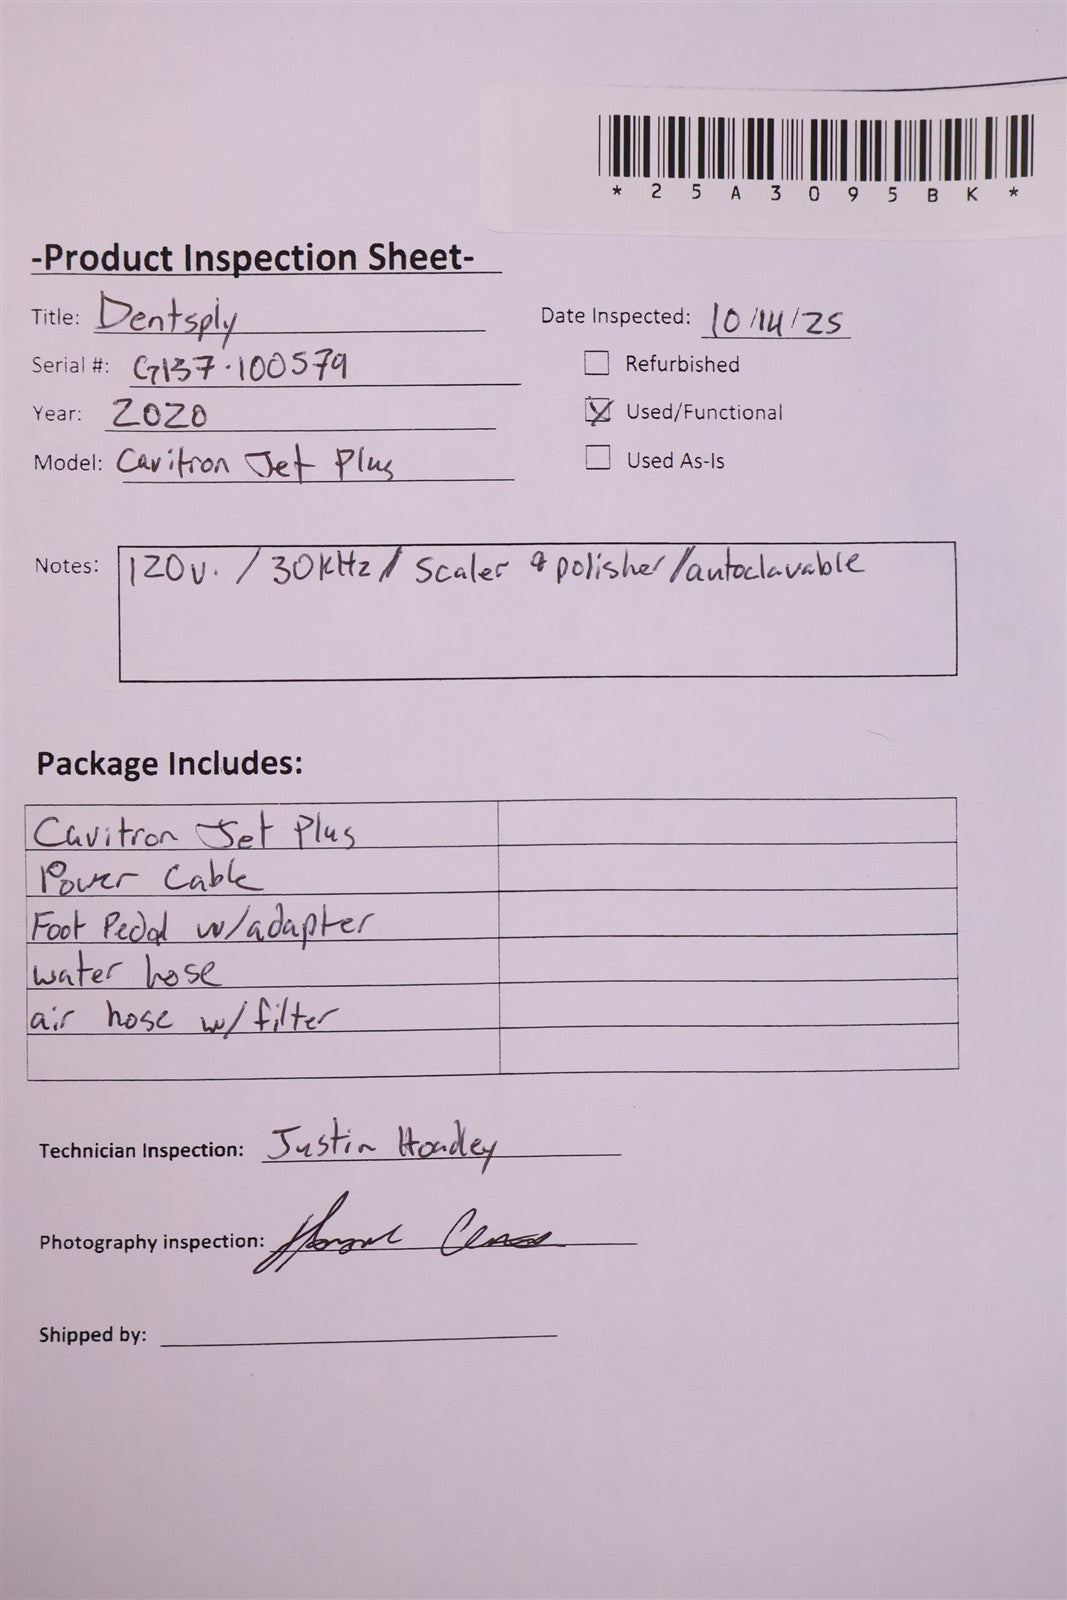 *25A3095BK*
-Product Inspection Sheet-
Title: Dentsply
Date Inspected: 10/14/25
Serial #: G137-100579
Refurbished
Year: 2020
Used/Functional
Model: Cavitron Jet Plus
Used As-Is
Notes: 120v. / 30kHz / Scaler & polisher / autoclavable
Package Includes:
Cavitron Jet Plus
Power Cable
Foot Pedal w/adapter
water hose
air hose w/ filter
Technician Inspection: Justin Hoadley
Photography inspection:
Shipped by: